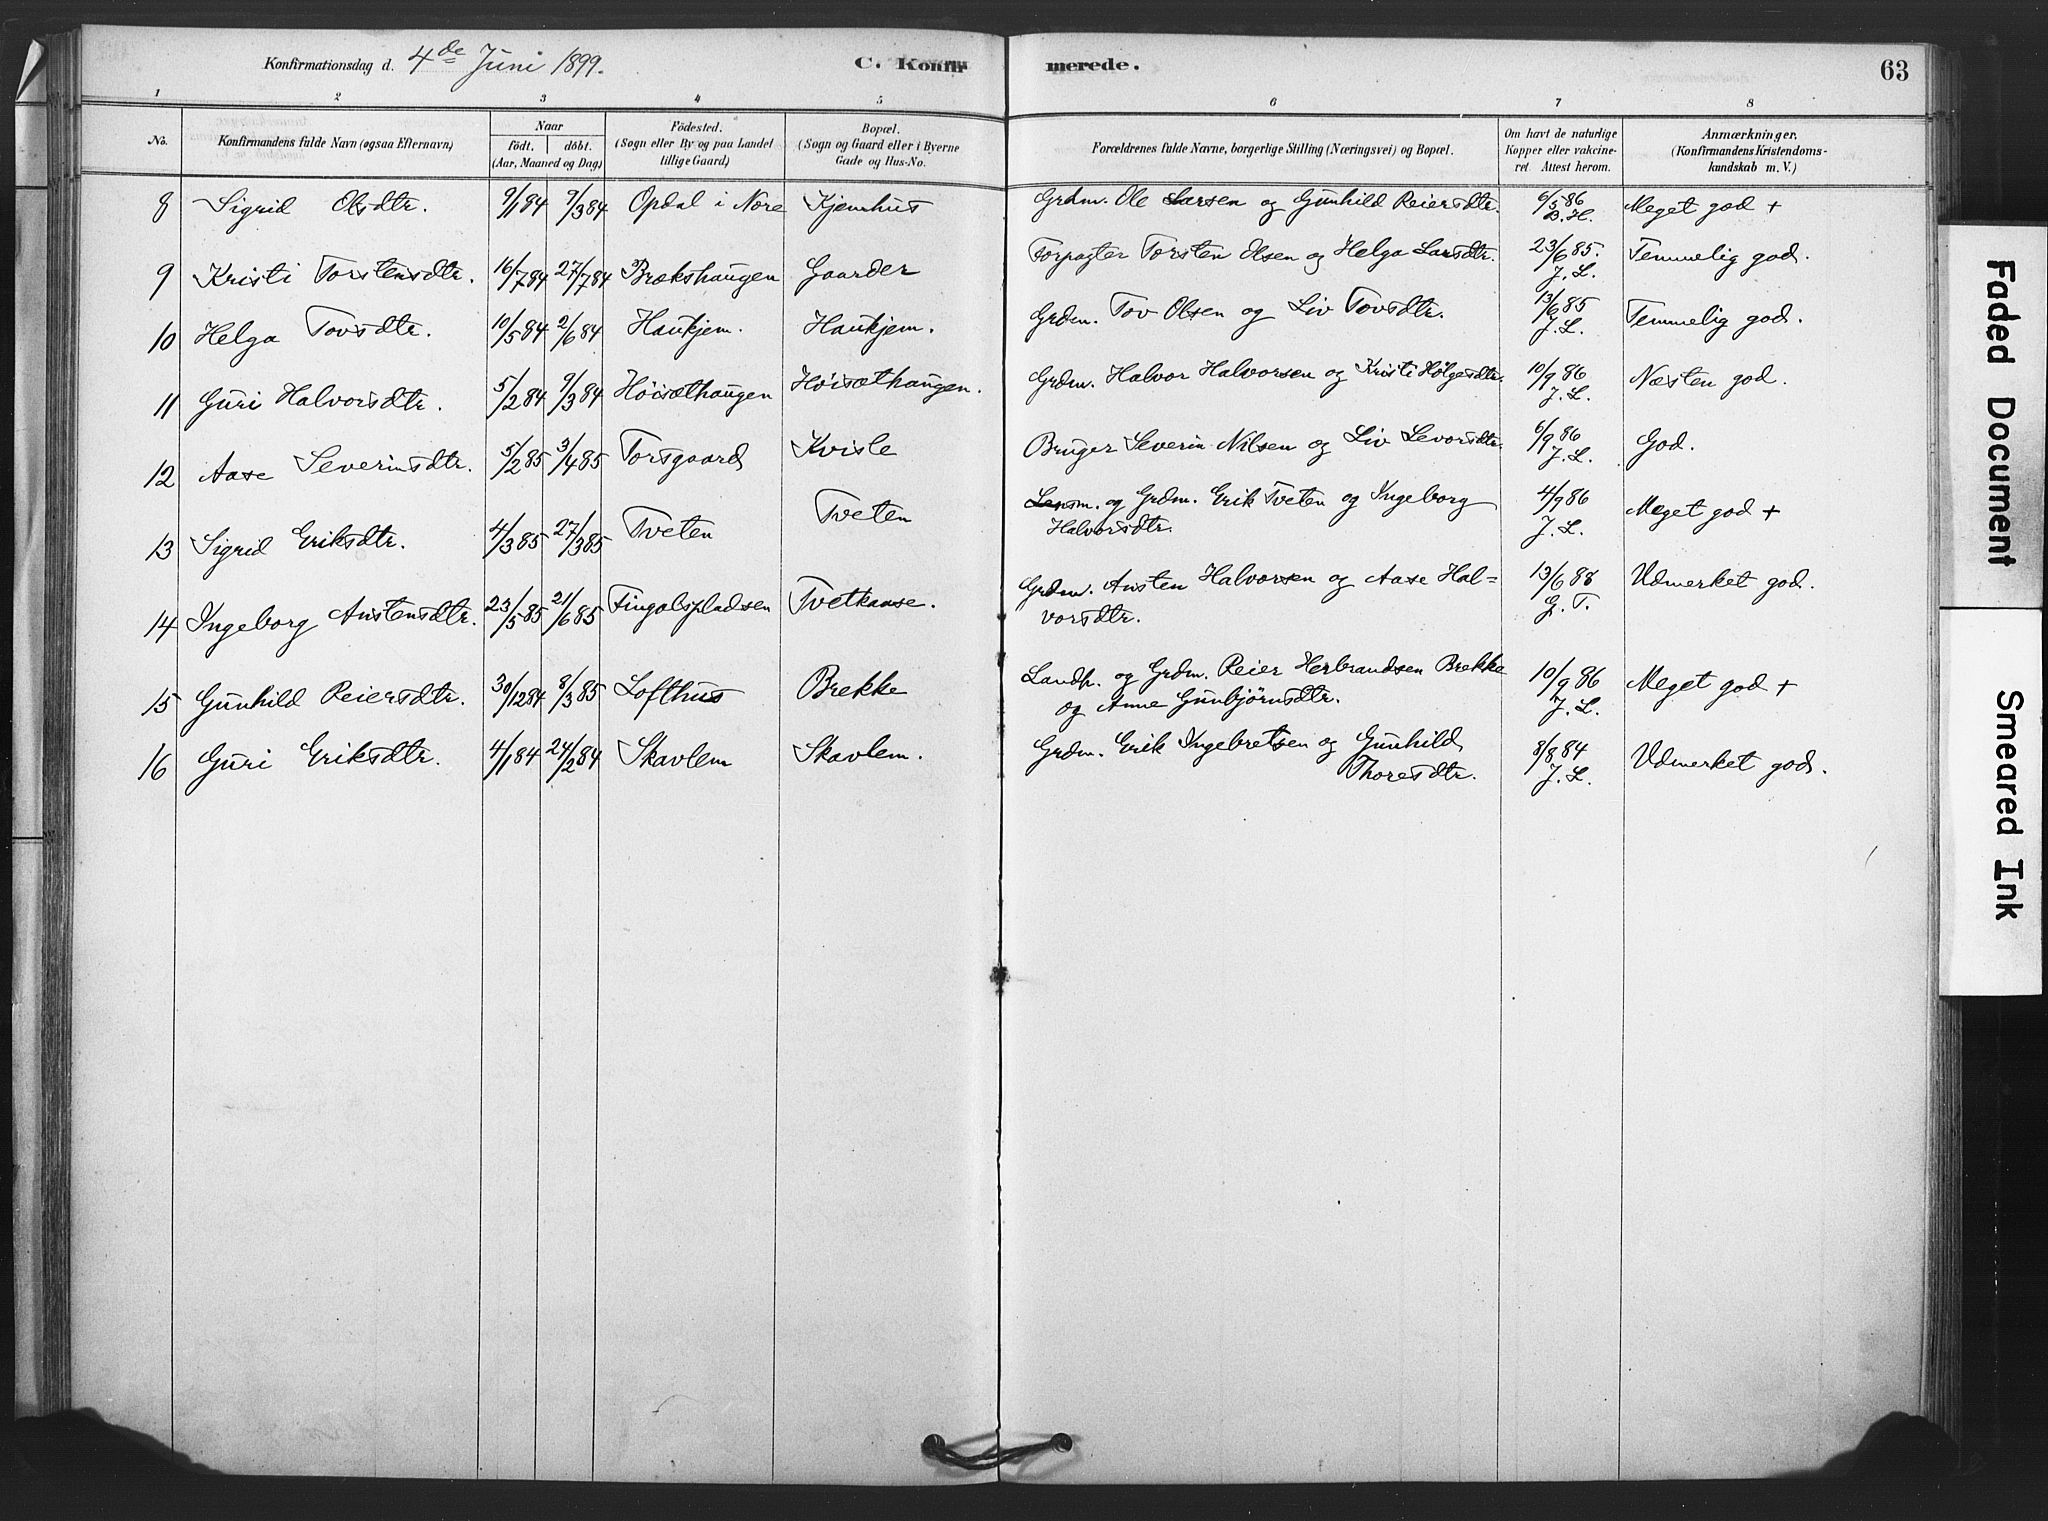 Konfirmationsdag d. 4de Juni 1899. C. Konfirmerede. 63
1 2 3 4 5 6 7 8
No. Konfirmandens fulde Navn (ogsaa Efternavn) Naar Födt. döbt. (Aar, Maaned og Dag) Födested. (Sogn eller By og paa Landet tillige Gaard) Bopæl. (Sogn og Gaard eller i Byerne Gade og Hus-No. Forældrenes fulde Navne, borgerlige Stilling (Næringsvei) og Bopæl. Om havt de naturlige Kopper eller vakcineret Attest herom. Anmærkninger, (Konfirmandens Kristendomskundskab m. V.)
8 Sigrid Olsdtr. 9/1 84 9/3 84 Opdal i Nore Kjemhus Grdm. Ole Larsen og Gunhild Reiersdtr. 6/5 86 B.H. Meget god +
9 Kristi Torstensdtr. 16/7 84 27/7 84 Brækshaugen Gaarder Forpagter Torsten Olsen og Helga Larsdtr. 23/6 85. J.L. Temmelig god.
10 Helga Tovsdtr. 10/5 84 2/6 84 Haukjem. Haukjem. Grdm. Tov Olsen og Liv Tovsdtr. 13/6 85 J.L. Temmelig god.
11 Guri Halvorsdtr. 5/2 84 9/3 84 Høisæthaugen Høisæthaugen. Grdm. Halvor Halvorsen og Kristi Holgesdtr. 10/9 86 J.L. Næsten god.
12 Aase Severinsdtr. 5/2 85 3/4 85 Torsgaard Kvisle Bruger Severin Nilsen og Liv Levorsdtr. 6/9 86 J.L. God.
13 Sigrid Eriksdtr. 4/3 85 27/3 85 Tveten Tveten Lensm. og Grdm. Erik Tveten og Ingeborg
Halvorsdtr. 4/9 86 J.L. Meget god +
14 Ingeborg Anstensdtr. 23/5 85 21/6 85 Fingalspladsen Tvetkaase. Grdm. Ansten Halvorsen og Aase Hal=
vorsdtr. 13/6 88 G.T. Udmerket god.
15 Gunhild Reiersdtr. 30/12 84 8/3 85 Lofthus Brekke Landh. og Grdm. Reier Herbrandsen Brekke
og Anne Gunbjørnsdtr. 10/9 86 J.L. Meget god +
16 Guri Eriksdtr. 4/1 84 24/2 84 Skavlem Skavlem. Grdm. Erik Ingebretsen og Gunhild
Thoresdtr. 8/8 84 J.L. Udmerket god.
Faded Document
Smeared Ink